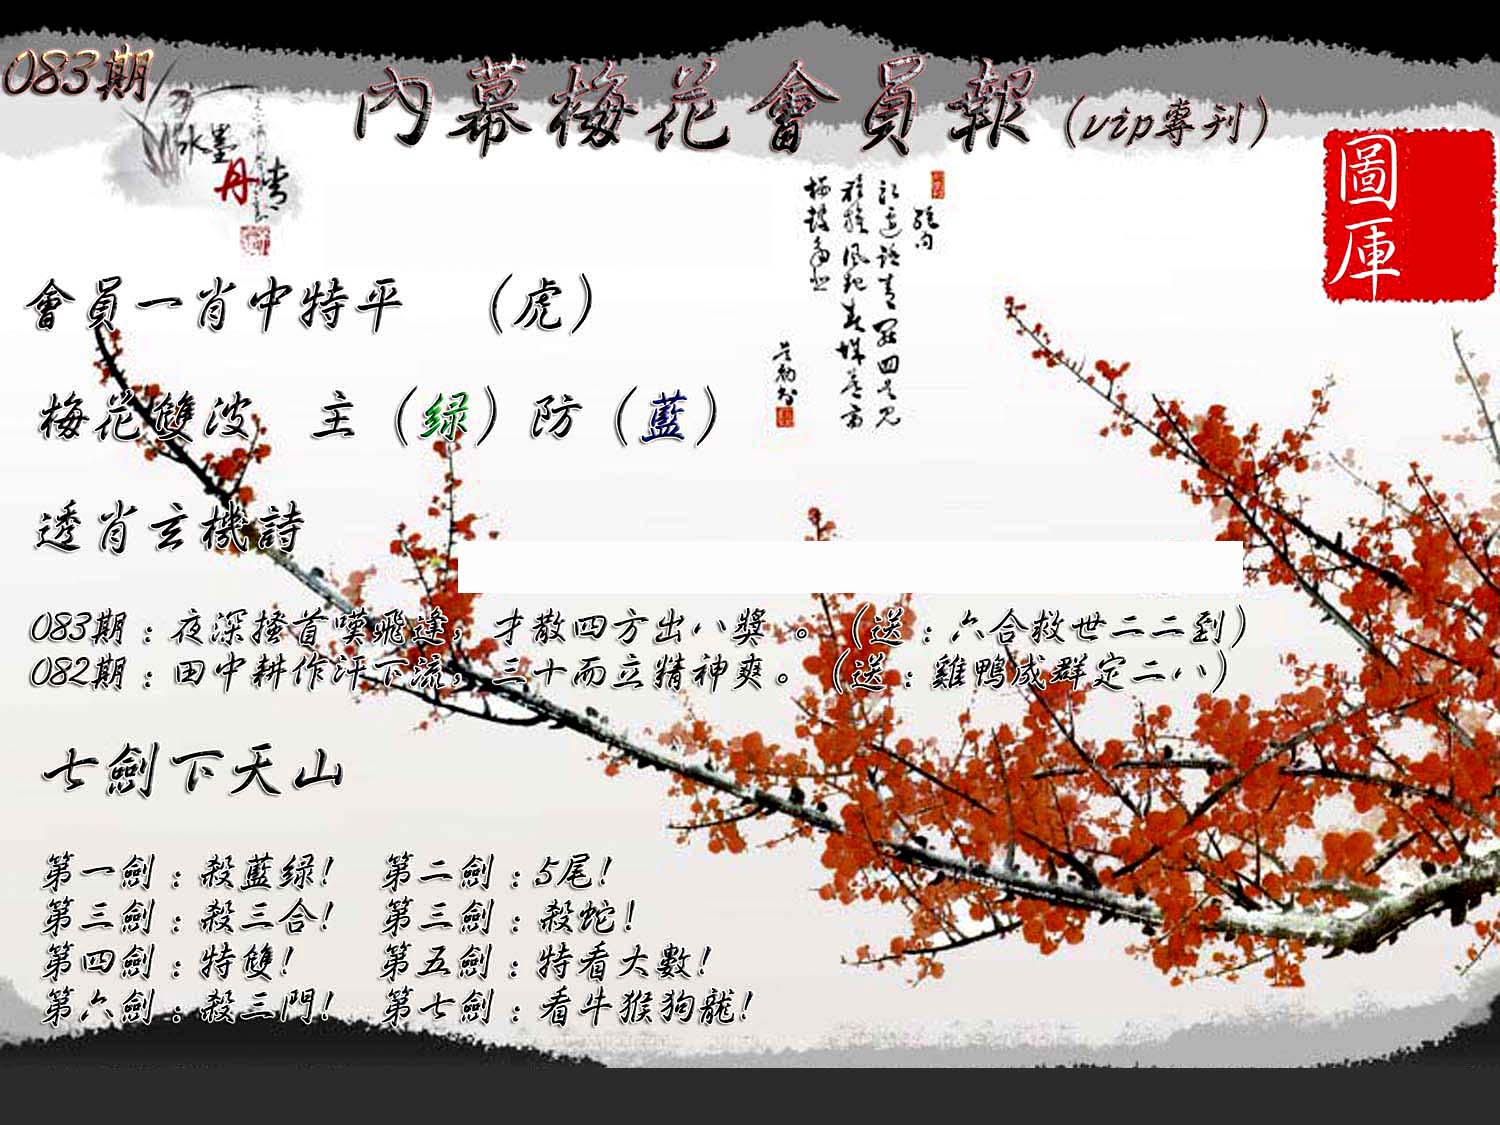 083期
內幕梅花會員報（vip專刊）
水墨
丹青
圖庫
會員一肖中特平　（虎）
梅花雙波　主（绿）防（藍）
透肖玄機詩
083期：夜深搔首嘆飛逢，才散四方出八獎。（送：六合救世二二到）
082期：田中耕作汗下流，三十而立精神爽。（送：雞鴨成群定二八）
七劍下天山
第一劍：殺藍绿！　第二劍：5尾！
第三劍：殺三合！　第三劍：殺蛇！
第四劍：特雙！　第五劍：特看大數！
第六劍：殺三門！　第七劍：看牛猴狗龍！